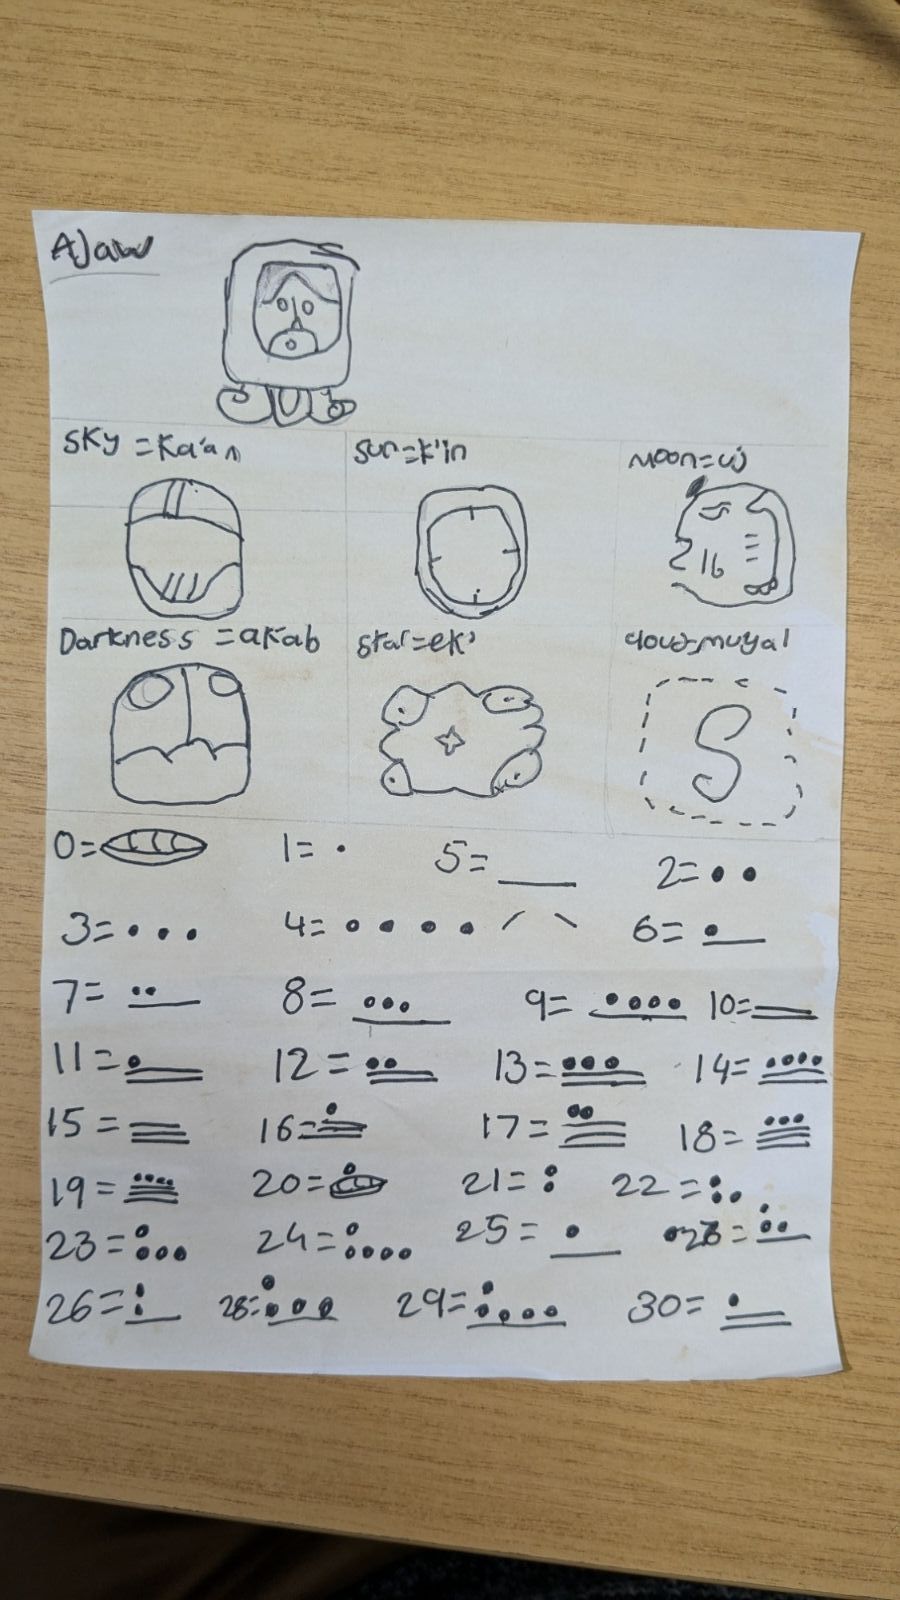 Ajaw
Sky = Ka'an Sun=k'in Moon=uj
Darkness = akab Star=ek' cloud=muyal
S
0= 1= 5= 2=
3= 4= 6=
7= 8= 9= 10=
11= 12= 13= 14=
15= 16= 17= 18=
19= 20= 21= 22=
23= 24= 25=
26= 28= 29= 30=